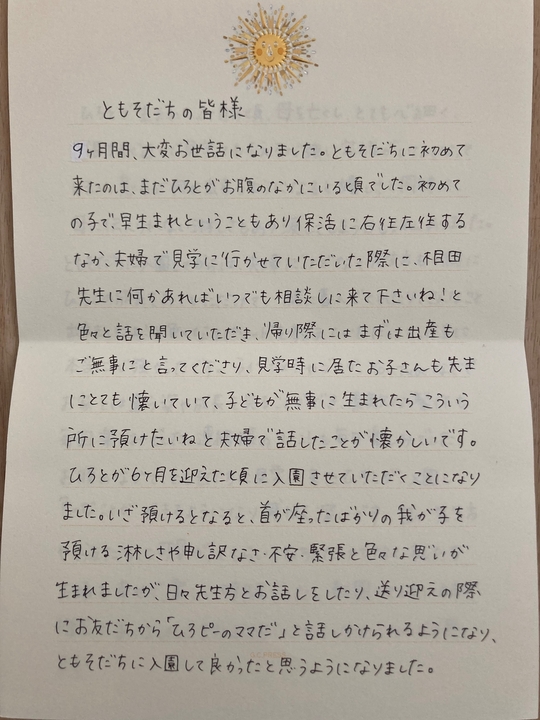 ともそだちの皆様
9ヶ月間、大変お世話になりました。ともそだちに初めて
来たのは、まだひろとがお腹のなかにいる頃でした。初めて
の子で、早生まれということもあり保活に右往左往する
なか、夫婦で見学に行かせていただいた際に、相田
先生に何かあればいつでも相談しに来て下さいね！と
色々と話を聞いていただき、帰り際にはまずは出産も
ご無事にと言ってくださり、見学時に居たお子さんも先生
にとても懐いていて、子どもが無事に生まれたらこういう
所に預けたいねと夫婦で話したことが懐かしいです。
ひろとが6ヶ月を迎えた頃に入園させていただくことになり
ました。いざ預けるとなると、首が座ったばかりの我が子を
預ける淋しさや申し訳なさ・不安・緊張と色々な思いが
生まれましたが、日々先生方とお話しをしたり、送り迎えの際
にお友だちから「ひろピーのママだ」と話しかけられるようになり、
ともそだちに入園して良かったと思うようになりました。